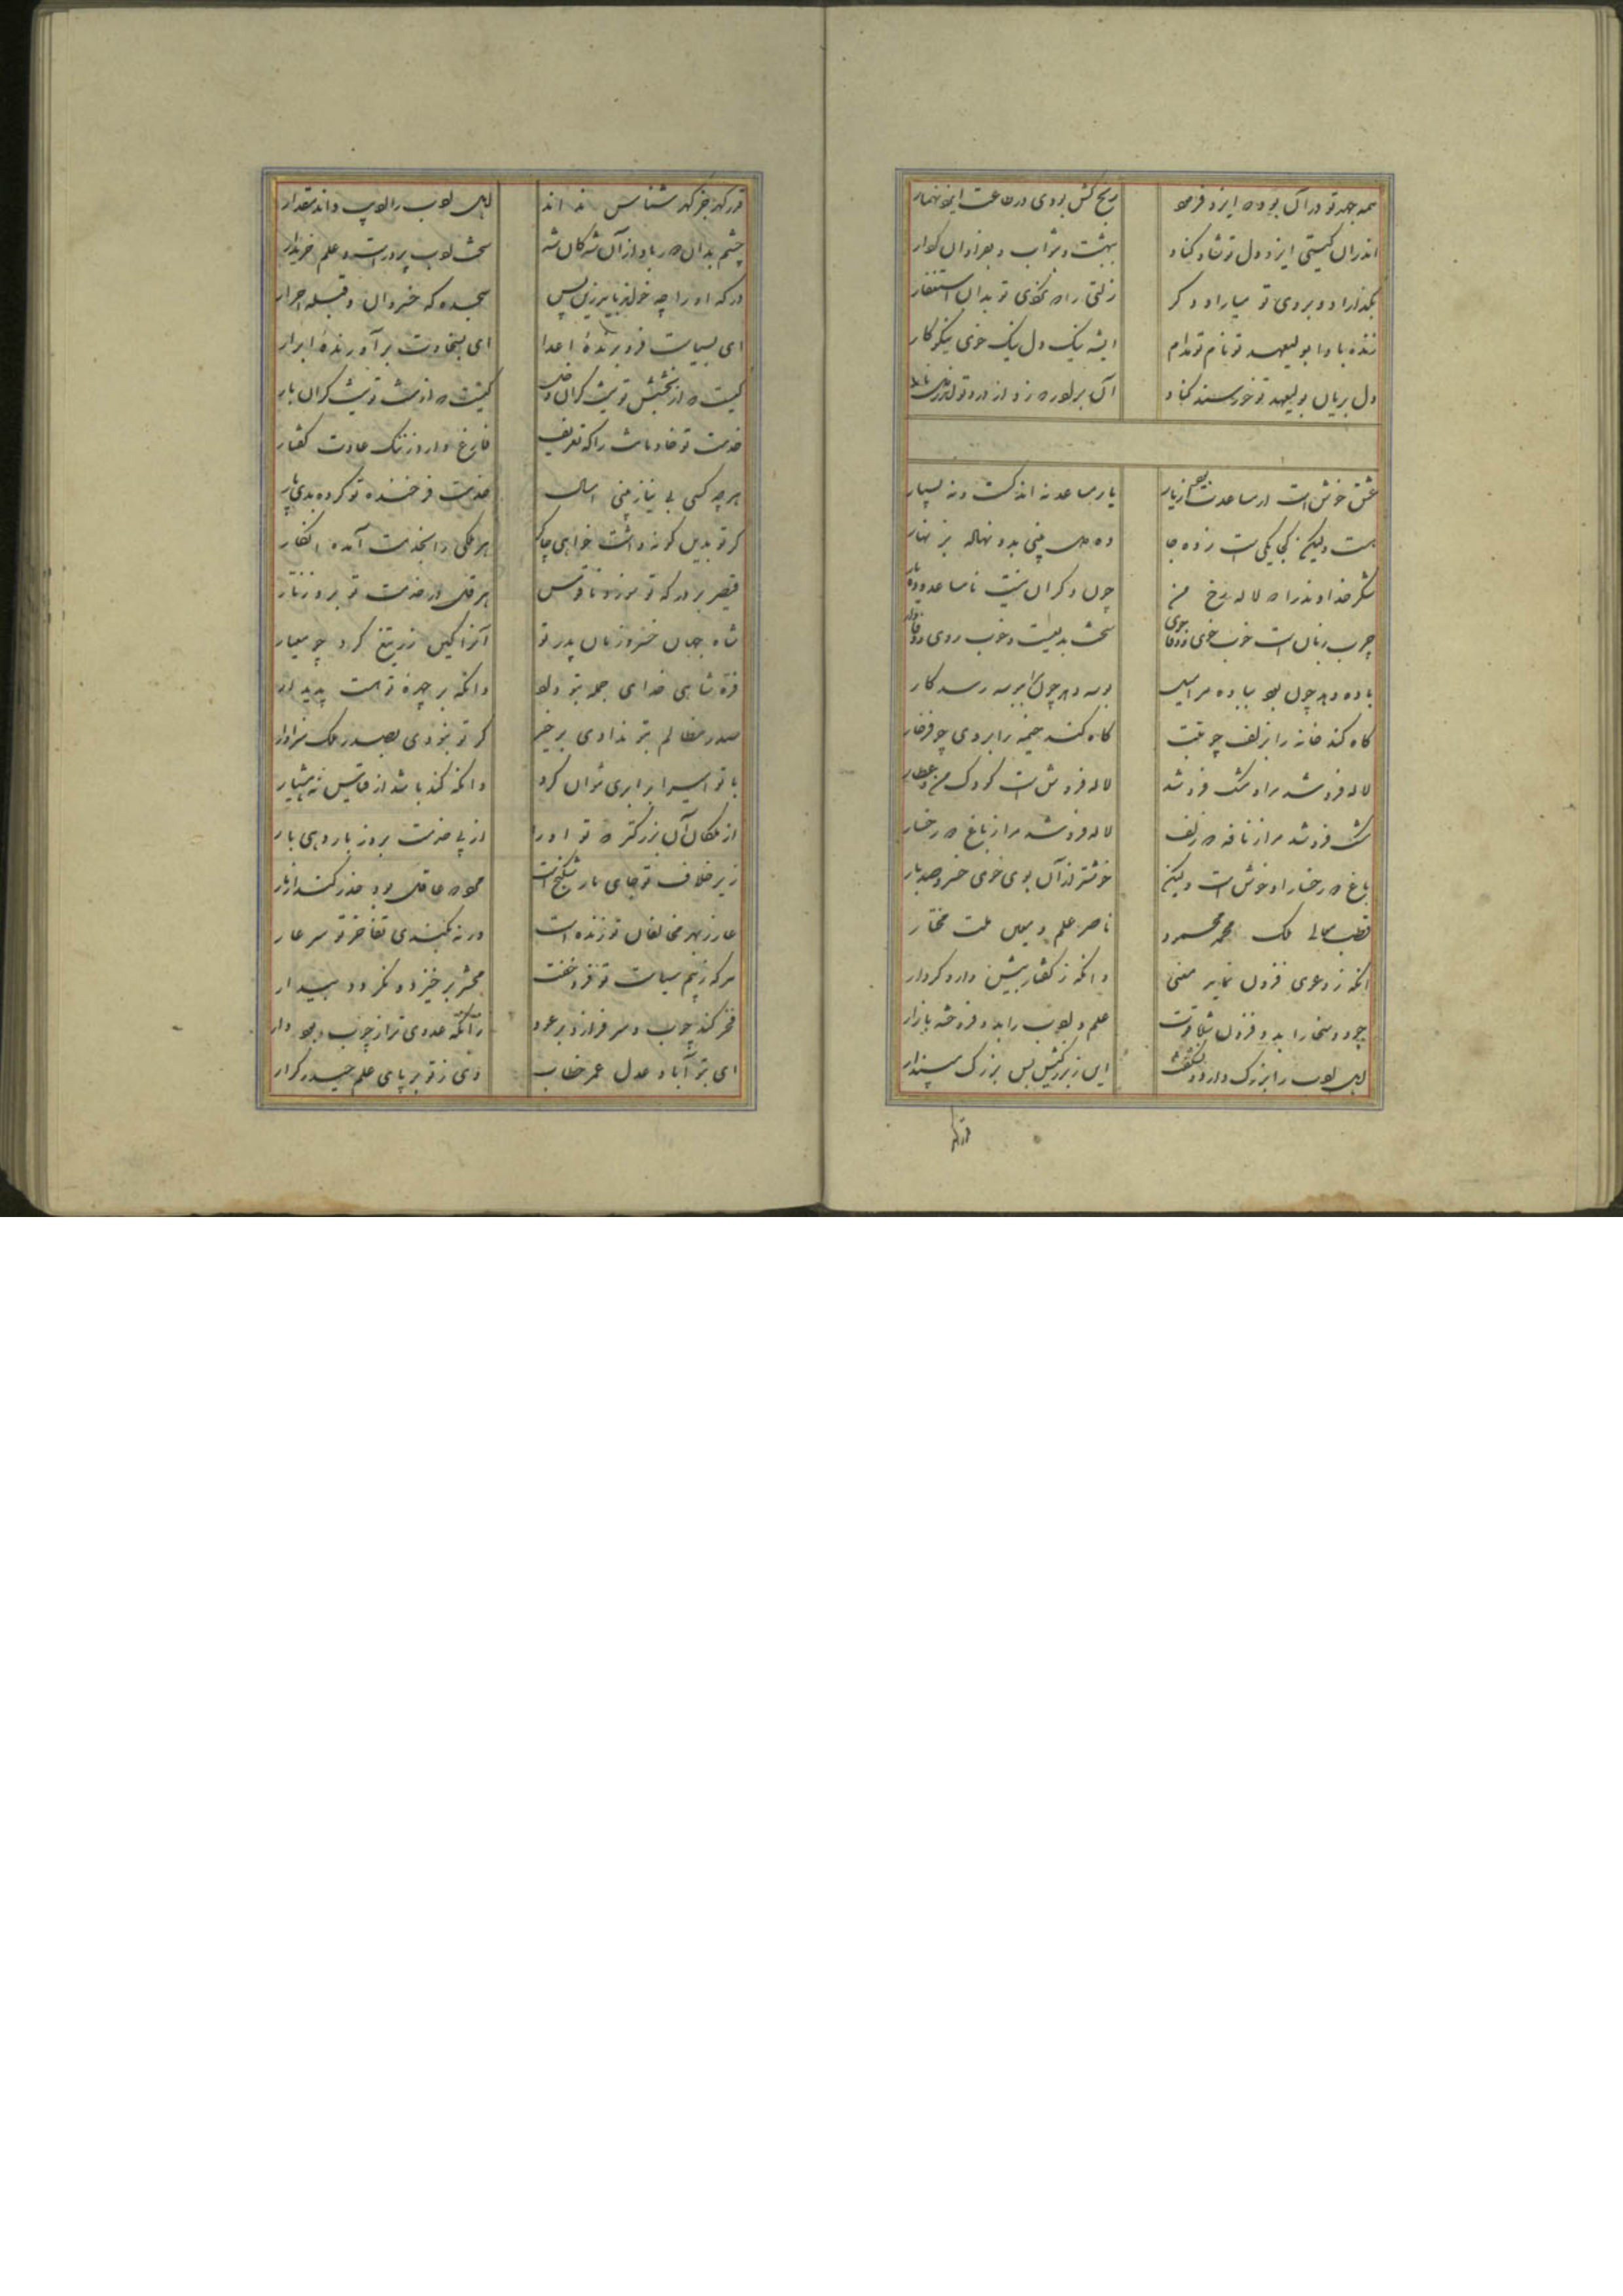 همه جهد تو در آن بوده که ایزد فرمود
رنج کش بودی در طاعت ایزد هموار
اندران گیتی ایزد دل تو شاد کناد
بهشت و ثواب و بفراوان کردار
مگذاراد و بروی تو میاراد و گر
زلتی را که نکردی تو بدان استغفار
زنده بادا بولیعهد تو نام تو مدام
ای شه نیک دل نیک خوی نیکو کار
دل بریان بولیعهد تو خورسند کناد
آن برادر که ز درد تو
عشق خوش است ار مساعدت بود از یار
یار مساعد نه اندک است و نه بسیار
هست ولیکن یکی است زده جا
ده دل بینی بدو نهاله بز نهار
شکر خداوند را که لاله رخ من
چون دگران نیست نامساعد و
چرب زبان است خوب خوی
سخت بدیع است و خوب روی و
باده دهد چون بود بباده مرا میل
بوسه دهد چون مرا ببوسه رسد کار
گاه کند خانه را بزلف چو تبت
گاه کند خیمه را بروی چو فرخار
لاله فروشد مرا و مشک فروشد
لاله فروش است کودک من و عطار
مشک فروشد مرا ز نافه که زلف
لاله فروشد مرا ز باغ که رخسار
باغ که رخسار او خوش است ولیکن
خوشتر از آن بوی خوی خسرو صد بار
قطب معالی ملک محمد محمود
ناصر علم و معین ملت مختار
آنکه ز دعوی فزون نماید معنی
و آنکه ز گفتار بیش دارد کردار
جود و سخا را بدو فزون شد قوت
علم و ادب را بدو فروخته بازار
اهل ادب را بزرگ دارد و
این ز بزرگیش بس بزرگ مپندار
قدر گهر
قدر گهر جز گهر شناس نداند
اهل ادب را ادیب داند مقدار
چشم بدان دور باد از آن شه کان شه
سخت ادب پرور است و علم خریدار
درگه او را چه خوانند بایر زین پس
سجده گه خسروان و قبله احرار
ای بسیاست فرو برنده اعدا
ای بسخاوت بر آورنده ابرار
کیست که از بخشش تو نیست گران
کیست که از منت تو نیست گران بار
خدمت تو خادمانت را گه تعریف
فارغ دارد ز ننگ عادت گفتار
هر چه کسی بی نیاز بینی امسال
خدمت فرخنده تو کرده بدی پار
گر تو بدین گونه داشت خواهی چاکر
هر ملکی را بخدمت آمده انگار
قیصر بر درگه تو سوزد ناقوس
هرقل در خدمت تو برد زنار
شاه جهان خسرو زمان پدر تو
آنرا کین زر تیغ گرد چو معیار
فره شاهی خدای جمله بتو داد
و آنکه بر چهره تو هست پدیدار
صدر مظالم بتو ندادی بر خیر
گر تو نبودی بصدر ملک سزاوار
با تو امیرا برابری نتوان کرد
و آنکه کند باشد از قیاس نه هشیار
از ملکان آن بزرگتر که تو او را
از پی خدمت بروز بار دهی بار
زیر خلاف تو جای مار شکنج است
مردم عاقل بود حذر کند از مار
عار ز بهر مخالفان تو زنده است
ور نه بکندی تفاخر تو سر عار
هر که ز بیم سیاست تو فرو خفت
محشر برخیزد و نگردد بیدار
فخر کند چوب و سر فرازد بر عود
ز آنکه عدوی ترا ز چوب بود دار
ای بتو آباد عدل عمر خطاب
وی ز تو بر پای علم حیدر کرار